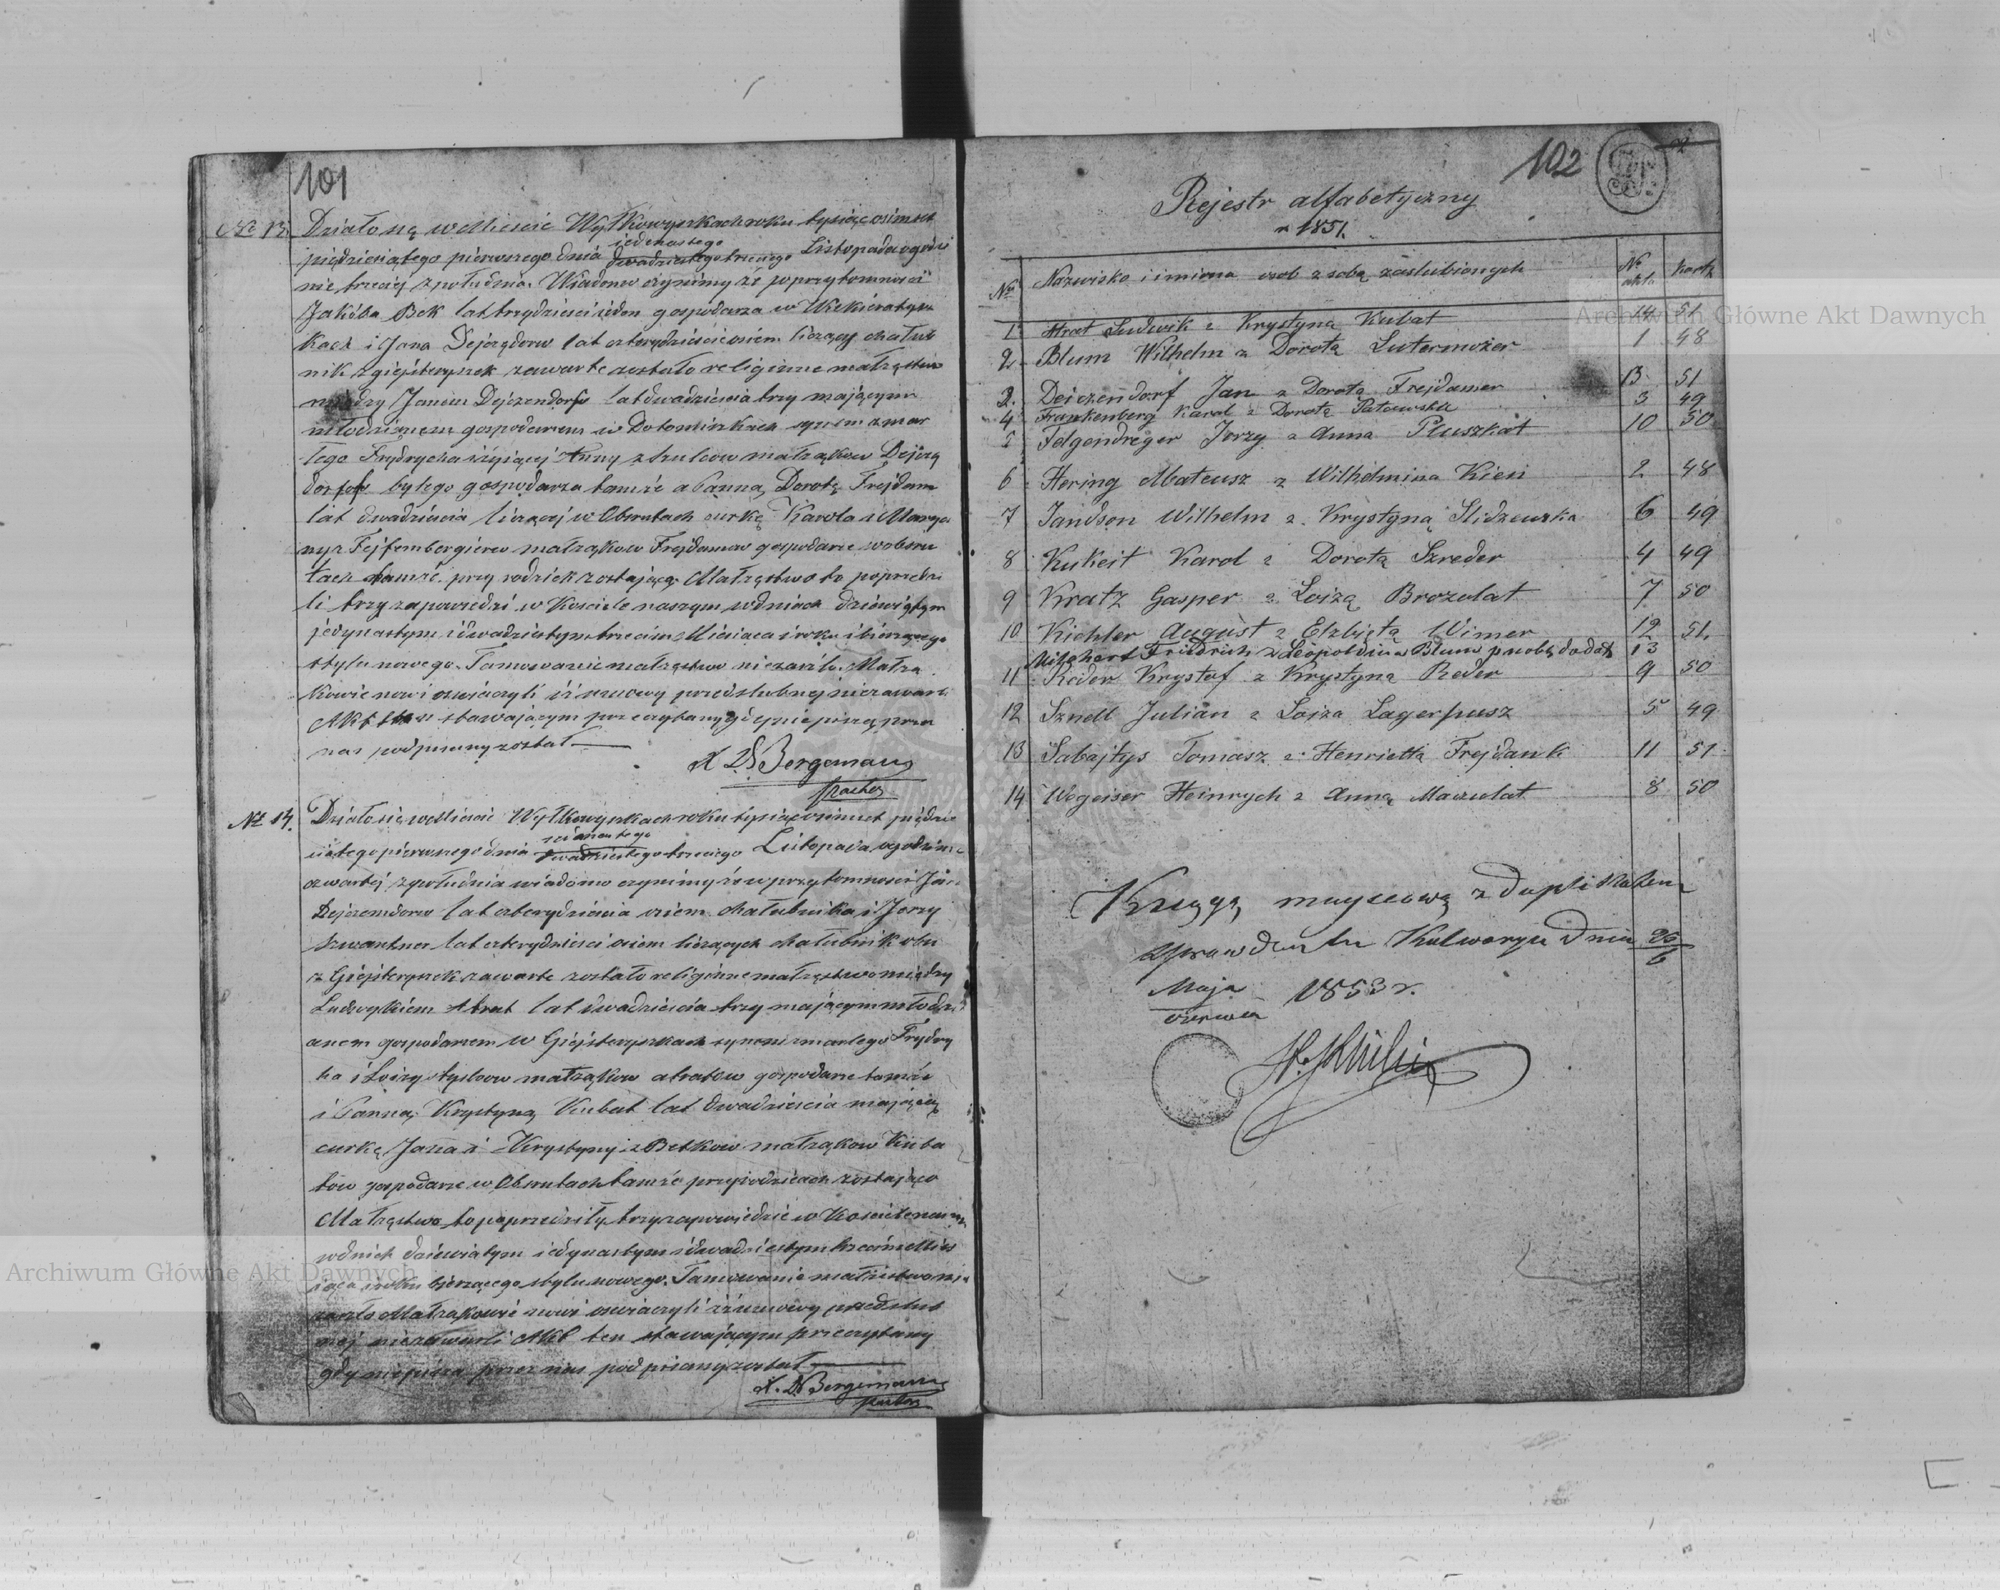 101
№ 13.
Działo się w Mieście Wyłkowyszkach roku tysiąc osimset
jedenastego
piędziesiątego pierwszego dnia dwudziestego trzeciego Listopada o godzi
nie trzeciej z południa. Wiadomo czynimy że w przytomności
Jakóba Bek lat trzydzieści jeden gospodarza w
kach i Jana Dejcządorw lat czterdzieści osiem liczący chałub
nik z giejsteryszek zawarte zostało religijne małżęstwo
między Janem Dejczendorfw lat dwadzieścia trzy mającym
młodzianem gospodarem w synem zmar
łego Frydrycha i Anny z małżąków Dejczą
dorfów byłego gospodarza tamże a Panną Dorotą Frejdam
lat dwadzieścia liczącej w Obrutach curką Karola i Marya
ny z małżąków Frejdamów gospodarze w obru
tach tamże przy rodzicach zostającą Małżęstwo to poprzedzi
li trzy zapowiedzi w Kosciele naszym w dniach dziewiątym
jedynastym i dwadziestym trzecim Miesiąca i roku bieżącego
stylu nowego. Tamowanie małżęstwo nie zaszło. Małżą
kowie nowi oswiaczyli iż umowy przedslubnej nie zawarli
Akt ten stawającym przeczytany gdy nie piszą przez
nas podpisany został.
X D Bergemann
Pastor
№ 14.
Działo się w Mieście Wyłkowyszkach roku tysiąc osimset piędzie
jedenastego
siątego pierwszego dnia dwudziestego trzeciego Listopada o godzinie
czwartej z południa wiadomo czynimy że w przytomności Jan
Dejczendorw lat czterydzieścia osiem chałubnika i Jerzy
Szwantner lat czterydzieści osiem liczących chałubnik obu
z Giejsteryszek zawarte zostało religijne małżęstwo między
Ludwykiem Atrat lat dwadzieścia trzy mającym młodzi
anem gospodarem w Giejsteryszkach synem zmarłego Frydry
ha i Loizy małżąków atratów gospodarze tamże
i Panną Krystyną Kubat lat dwadzieścia mającą
curką Jana i Krystyny z Betków małżąków Kuba
tów gospodarze w Obrutach tamże przy rodzicach zostająco
Małżęstwo to poprzedziły trzy zapowiedzie w Kosciele naszym
w dniach dziewiatym jedynastym i dwadziestym trzecim Mies
iąca i roku bieżącego stylu nowego. Tamowanie małżestwo nie
zaszło Małżąkowie nowi oswiaczyli iż umowy przedslub
nej nie zawarli Akt ten stawającym przeczytany
gdy nie piszą przez nas podpisany został
X. D Bergemann
Pastor
102
Rejestr alfabetyczny
r 1851.
№ Nazwisko i imiona osob z sobą zaslubionych № aktu Karta
1 Atrat Ludwik z Krystyną Kubat 14 51
2. Blum Wilhelm z Dorotą Lutermozer 1 48
3. Deiczendorf Jan z Dorotą Frejdamer 13 51
4 Frankenberg Karol z Dorotą Patawska 3 49
5 Felgendreger Jerzy z Anna Pluszkat 10 50
6 Hering Mateusz z Wilhelmina Kien 2 48
7 Jandson Wilhelm z Krystyną Slidzewska 6 49
8 Kukeit Karol z Dorotą Szreder 4 49
9 Kratz Gasper z Loizą Brozulat 7 50
10 Kiehler August z Elzbietą Wimer 12 51.
Milchert Friedrich z Leopoldina Blum 13
11 Reder Krystof z Krystyną Reder 9 50
12 Sznell Julian z Loiza Lagerpusz 5 49
13 Sabajtys Tomasz z Henriettą Frejdank 11 51
14 Wegeiser Heinrych z Anną Maczulat 8 50
Księgę z Duplikatem
sprawdzałem Kalwarya Dnia 26/6
Maja
czerwca 1853 r.
Archiwum Główne Akt Dawnych
Archiwum Główne Akt Dawnych